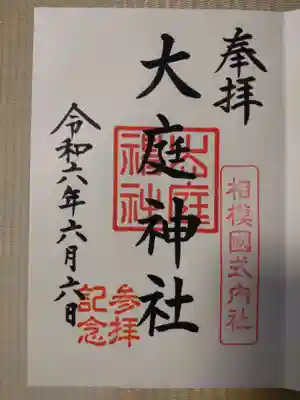 奉拝
相模國式内社
大庭神社
大庭神社
参拝
記念
令和六年六月六日